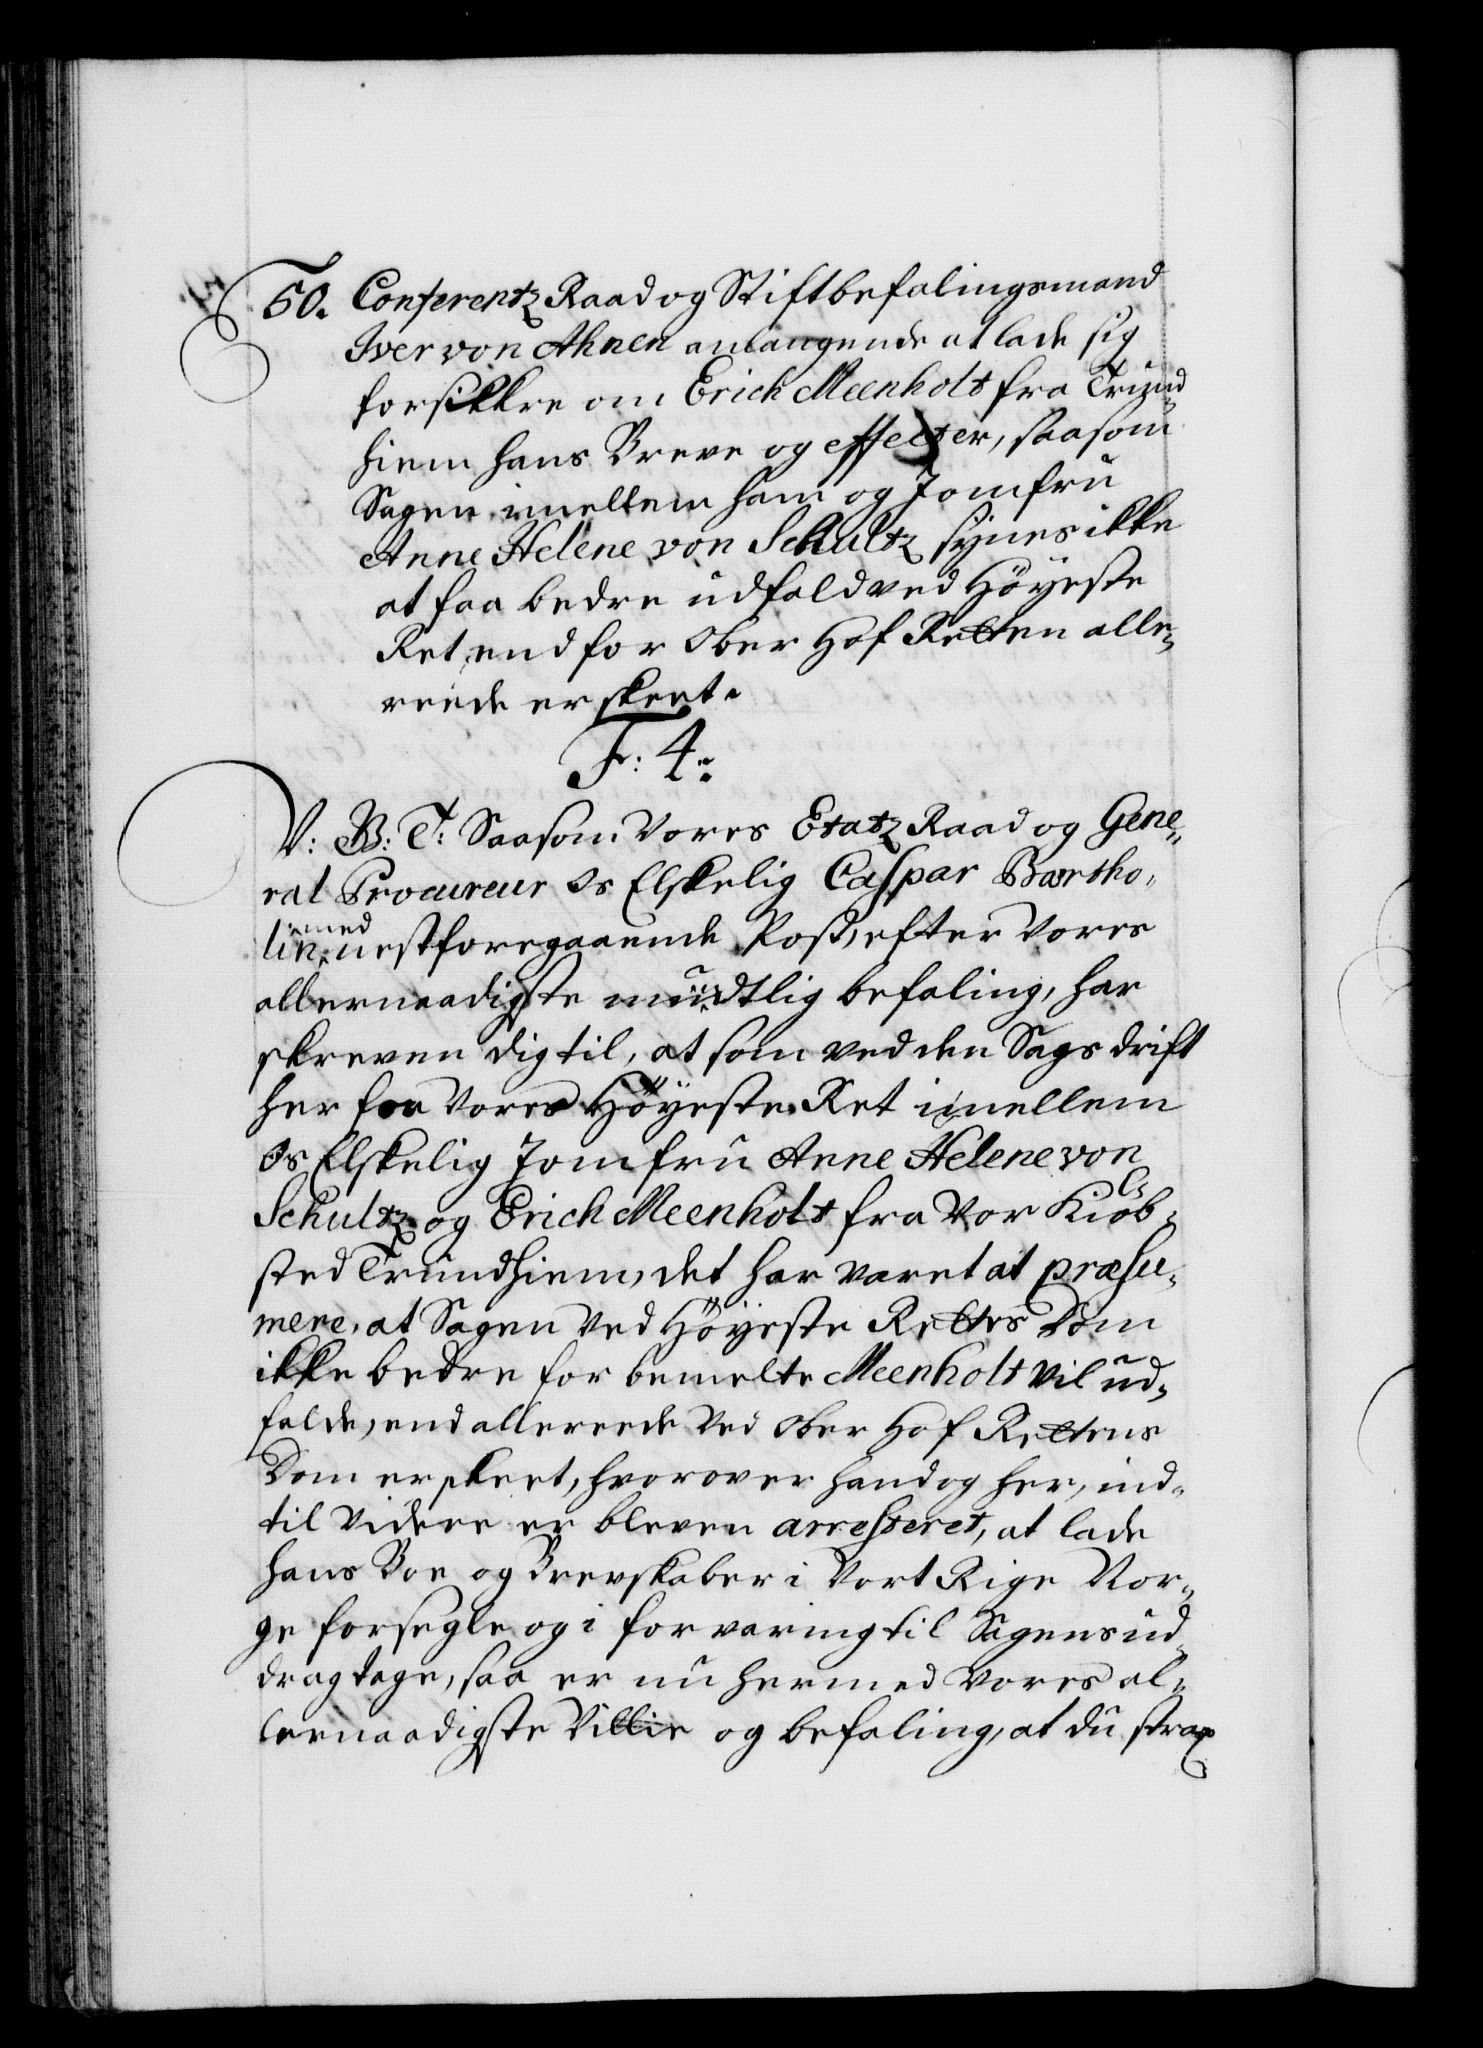 50. Conferentz Raad og Stiftbefalingsmand
Iver von Ahnen anlangende at lade sig
forsikkre om Erich Meenholt fra Trund¬
hiem hans Breve og effecter, saasom
Sagen imellem ham og Jomfru
Anne Helene von Schultz synes ikke
at faa bedre udfald ved Höyeste
Ret, end for Ober Hof Retten alle¬
reede er skeet.
F: 4.
V: G: T: Saasom Vores Etatz Raad og Gene¬
ral Procureur Os Elskelig Caspar Bartho¬
lin, med nestforegaaende Post, efter Vores
allernaadigste mündtlig befaling, har
skreven dig til, at som ved den Sags drift
her for Vores Höyeste Ret imellem
Os Elskelig Jomfru Anne Helene von
Schultz og Erich Meenholt fra Vor Kiöb¬
sted Trundhiem, det har varet at præsu¬
mere, at Sagen Ved Höyeste Rettes Dom
ikke bedre for bemelte Meenholt vil ud¬
falde, end allereede Ved Ober Hof Rettens
Dom er skeet, hvorover hand og her, ind¬
til Videre er bleven arresteret, at lade
hans Boe og Brevskaber i Vort Rige Nor¬
ge forsegle og i forvaring til Sagens ud¬
drag tage, saa er nu hermed Vores al¬
lernaadigste Villie og befaling, at du strax